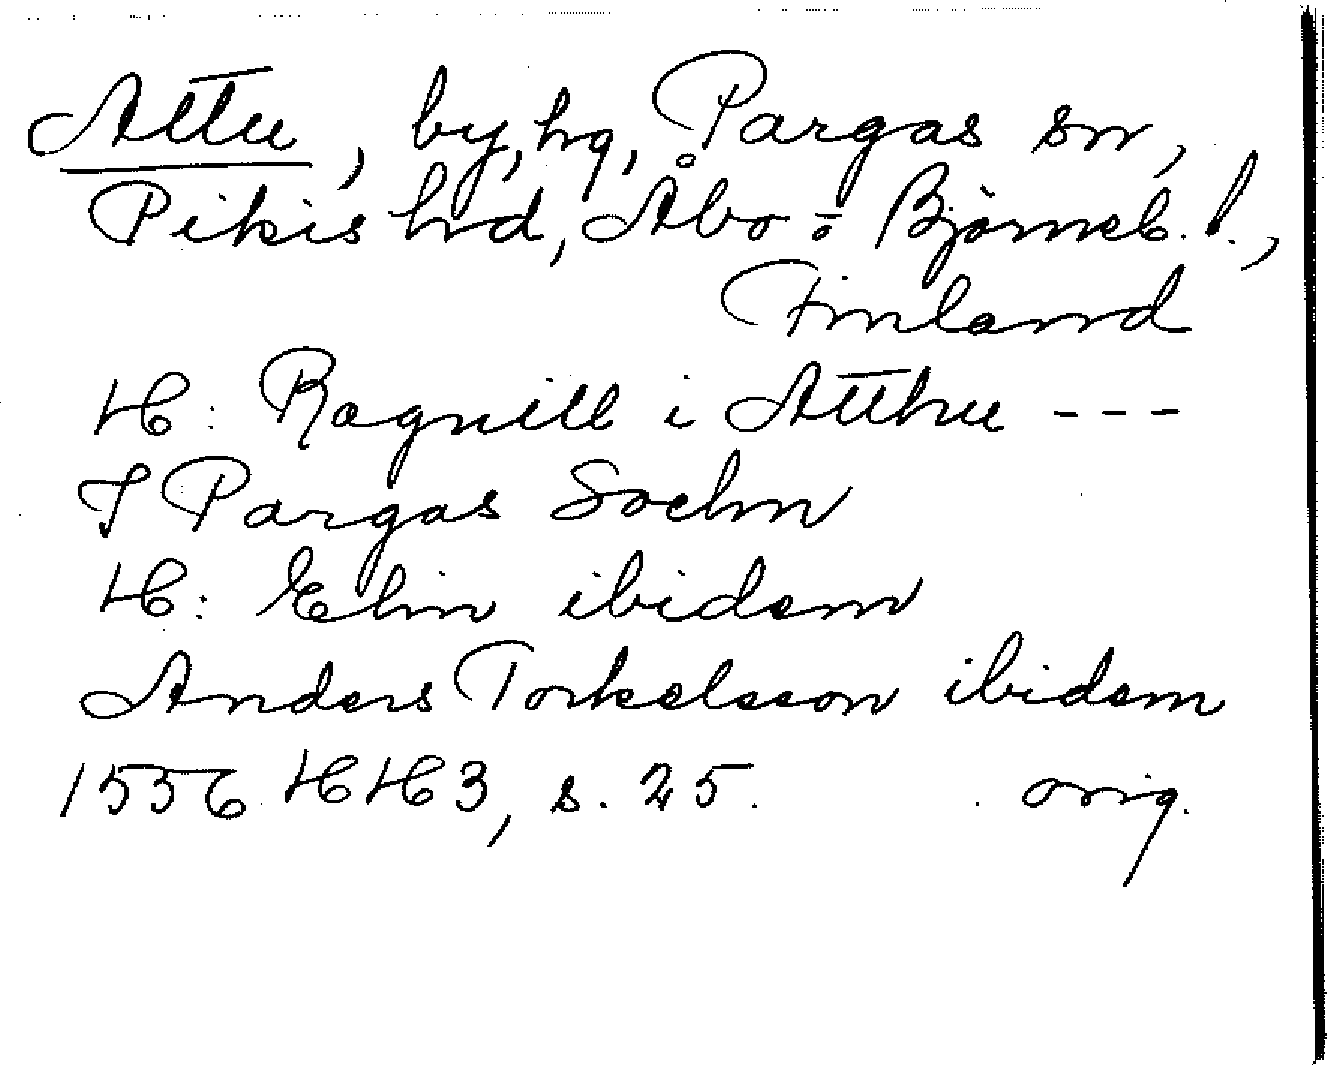 Attu, by, hg, Pargas sn,
Pikis hrd, Åbo o. Björneb. l.,
Finland
H: Ragnill i Atthu ---
J Pargas Sochn
H: Elin ibidem
Anders Torkelsson ibidem
1556 HH3, s. 25. orig.